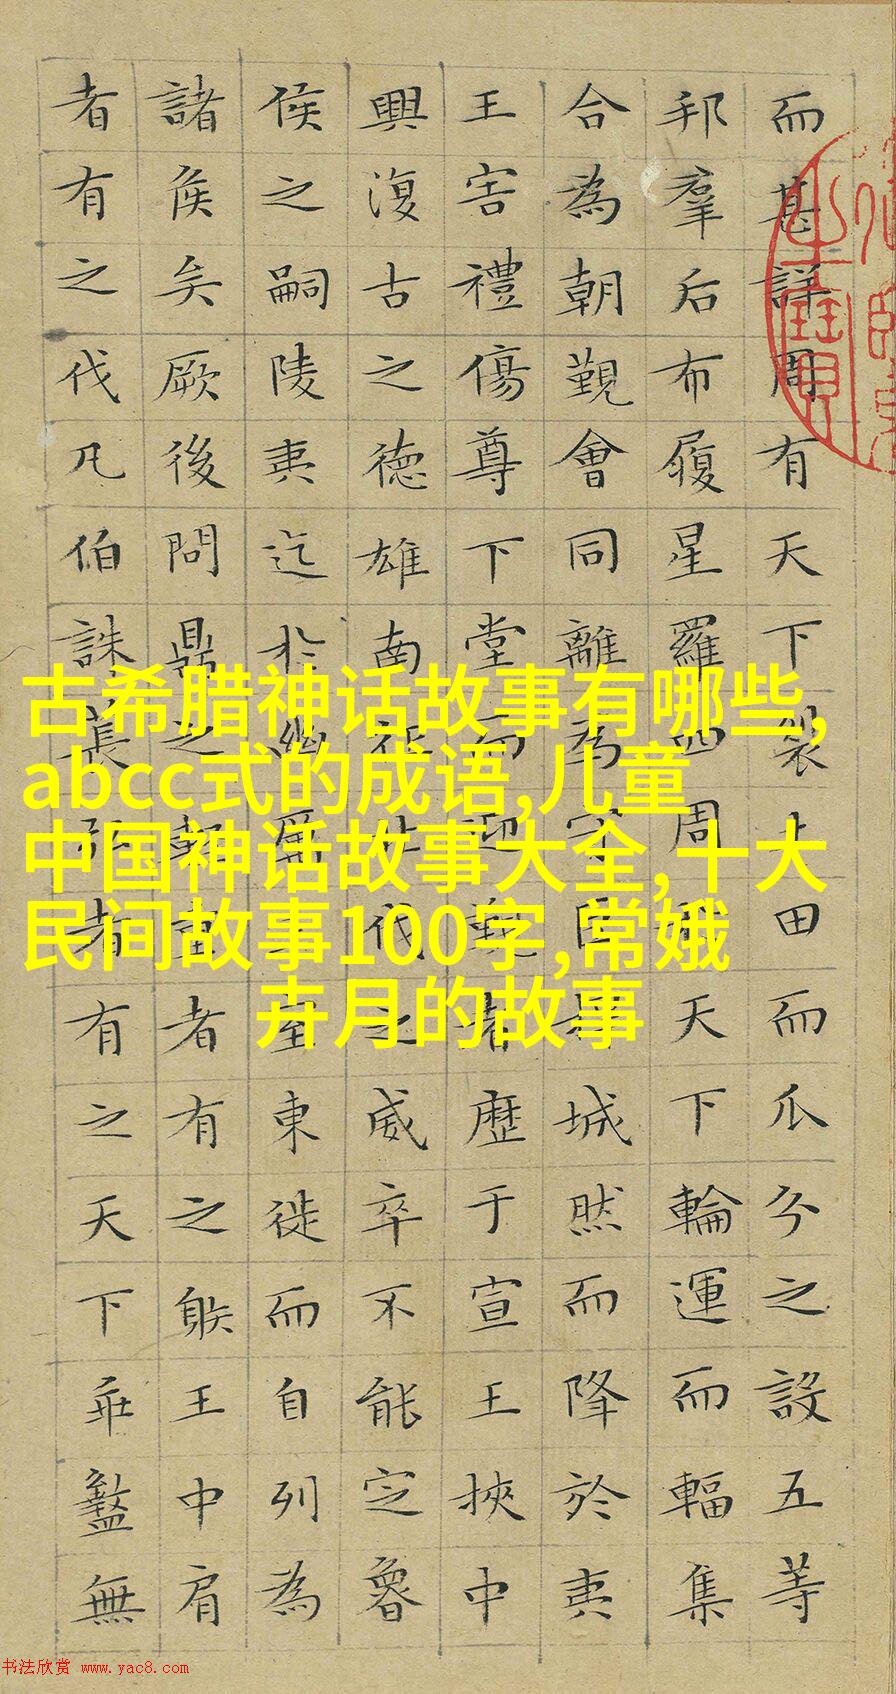 而甚詳周有天下裂土田而瓜分之設五等
邦羣后布履星羅四周天下輪運而輻集
合為朝覲會同離為守臣扞城然而降於夷
王害禮傷尊下堂而迎覲者歷于宣王挾中
興復古之德雄南征北伐之威卒不能定魯
侯之嗣陵夷迄於幽厲王室東徙而自列為
諸侯矣厥後問鼎之輕重者有之䠶王中肩
者有之伐凡伯誅萇弘者有之天下乖盭無
古希腊神话故事有哪些,
abcc式的成语,儿童
中国神话故事大全,十大
民间故事100字,常娥
卉月的故事
书法欣赏 www.yac8.com